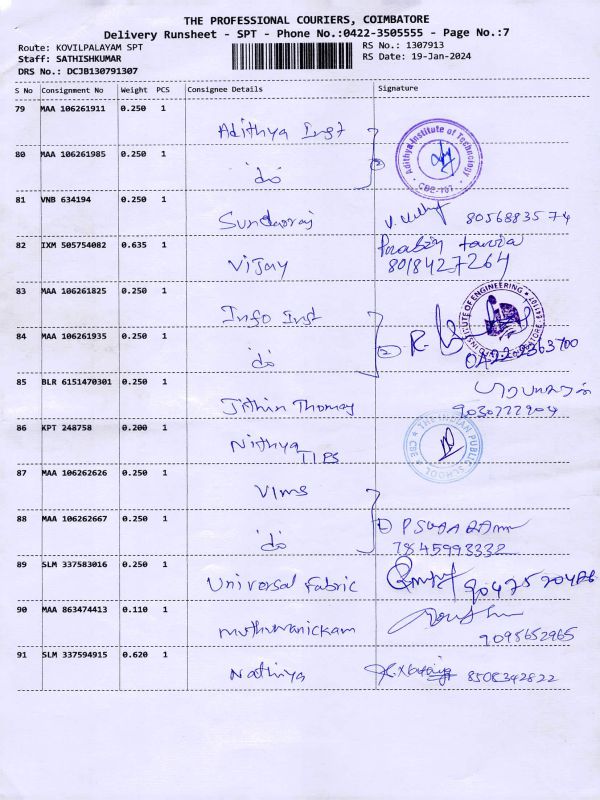 THE PROFESSIONAL COURIERS, COIMBATORE
Delivery Runsheet - SPT - Phone No.:0422-3505555 - Page No.:7
Route: KOVILPALAYAM SPT
RS No.: 1307913
Staff: SATHISHKUMAR
RS Date: 19-Jan-2024
DRS No.: DCJB130791307
S No Consignment No Weight PCS Consignee Details Signature
79 MAA 106261911 0.250 1
Adithya Inst
Adithya Institute of Technology
CBE-107
80 MAA 106261985 0.250 1
do
81 VNB 634194 0.250 1
Sundarraj 8056883574
82 IXM 505754082 0.635 1
Vijay 8018427264
83 MAA 106261825 0.250 1
Info Inst
INSTITUTE OF ENGINEERING
84 MAA 106261935 0.250 1
do 2 R.
85 BLR 6151470301 0.250 1
Jithin Thomas 9030777904
86 KPT 248758 0.200 1
Nithya TIPS
THE INDIAN PUBLIC SCHOOL
CBE
87 MAA 106262626 0.250 1
VIMS
88 MAA 106262667 0.250 1
do 7845993332
89 SLM 337583016 0.250 1
Universal Fabric
90 MAA 863474413 0.110 1
muthumanickam 9095652965
91 SLM 337594915 0.620 1
Nathiya 8508342822